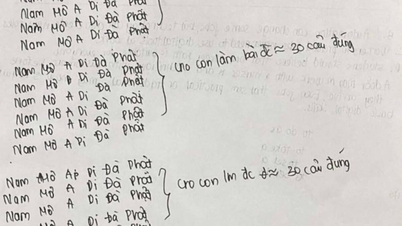 Nam Mô A Di Đà Phật
Nam Mô A Di Đà Phật
Nam Mô A Di Đà Phật
Nam Mô A Di Đà Phật
Nam Mô A Di Đà Phật
Nam Mô A Di Đà Phật
Nam Mô A Di Đà Phật
Nam Mô A Di Đà Phật
Nam Mô A Di Đà Phật
Nam Mô A Di Đà Phật
cho con làm bài đc ≈ 30 câu đúng
Nam Mô A Di Đà Phật
Nam Mô A Di Đà Phật
Nam Mô A Di Đà Phật
Nam Mô A Di Đà Phật
cho con lm đc ≈ 30 câu đúng